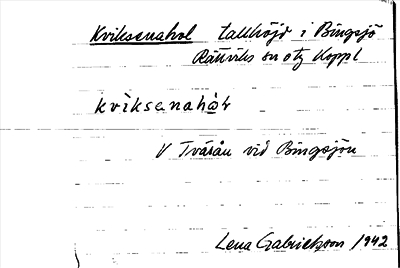 Kviksenahol tallhöjd i Bingsjö
Rättviks sn o tg Koppl
kviksenahål
V Tvärån vid Bingsjön
Lena Gabrielsson 1942